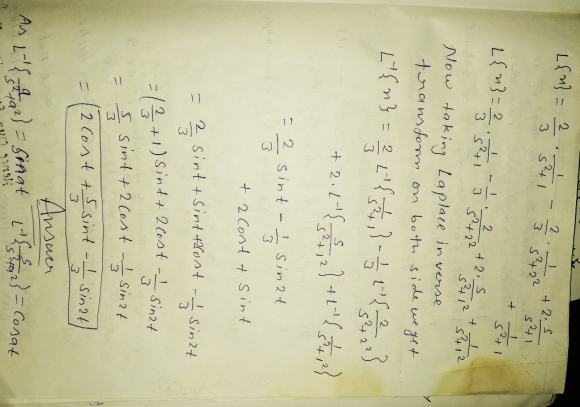 L{x} = 2/3 · 1/s²+1 - 2/3 · 1/s²+2² + 2·s/s²+1 + 1/s²+1
L{x} = 2/3 · 1/s²+1 - 1/3 · 2/s²+2² + 2·s/s²+1² + 1/s²+1²
Now taking Laplace inverse
transform on both side we get
L⁻¹{x} = 2/3 L⁻¹{1/s²+1} - 1/3 L⁻¹{2/s²+2²}
+ 2·L⁻¹{s/s²+1²} + L⁻¹{1/s²+1²}
= 2/3 sint - 1/3 sin2t
+ 2cost + sint
= 2/3 sint + sint + 2cost - 1/3 sin2t
= (2/3 + 1) sint + 2cost - 1/3 sin2t
= 5/3 sint + 2cost - 1/3 sin2t
= (2cost + 5/3 sint - 1/3 sin2t)
Answer
As L⁻¹{a/s²+a²} = sinat L⁻¹{s/s²+a²} = cosat